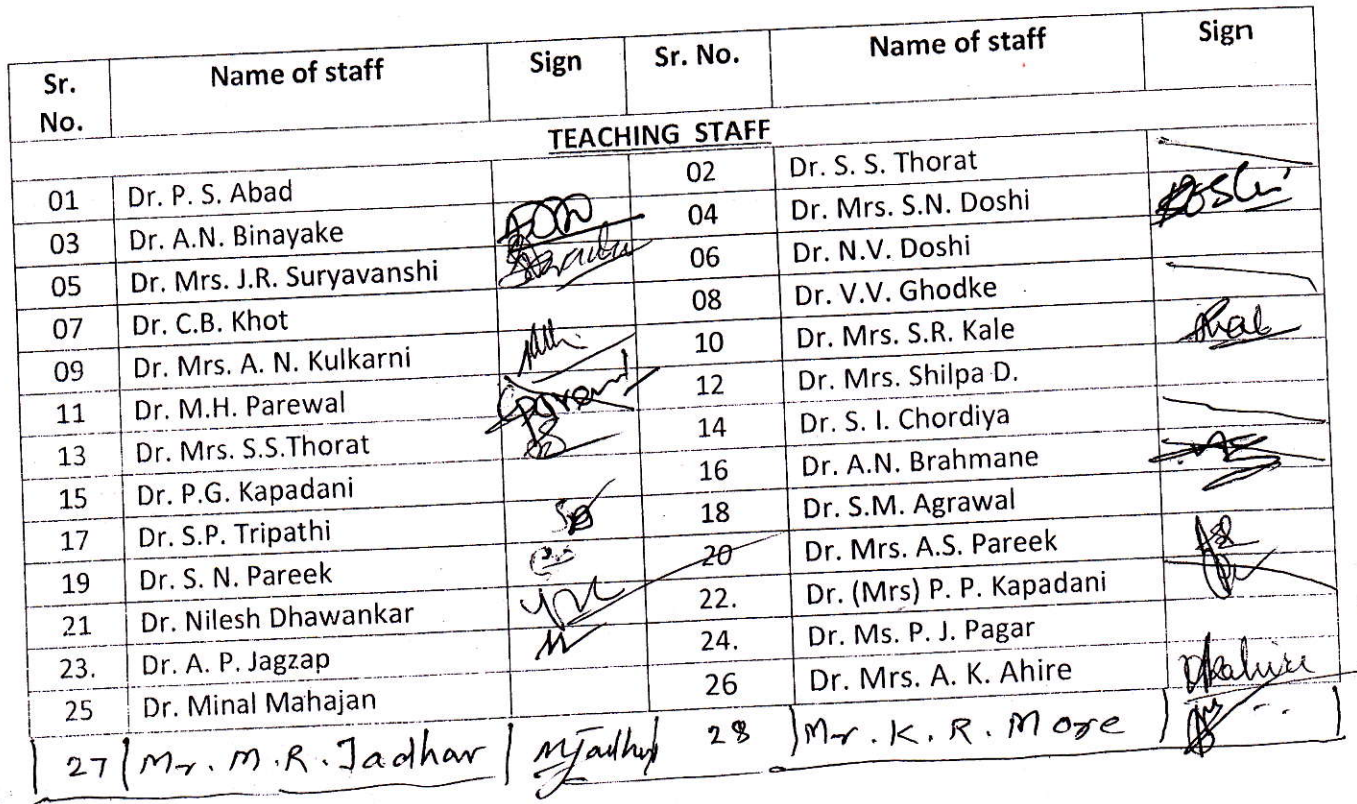 Sr. No. Name of staff Sign Sr. No. Name of staff Sign
TEACHING STAFF
01 Dr. P. S. Abad 02 Dr. S. S. Thorat
03 Dr. A.N. Binayake 04 Dr. Mrs. S.N. Doshi
05 Dr. Mrs. J.R. Suryavanshi 06 Dr. N.V. Doshi
07 Dr. C.B. Khot 08 Dr. V.V. Ghodke
09 Dr. Mrs. A. N. Kulkarni 10 Dr. Mrs. S.R. Kale
11 Dr. M.H. Parewal 12 Dr. Mrs. Shilpa D.
13 Dr. Mrs. S.S.Thorat 14 Dr. S. I. Chordiya
15 Dr. P.G. Kapadani 16 Dr. A.N. Brahmane
17 Dr. S.P. Tripathi 18 Dr. S.M. Agrawal
19 Dr. S. N. Pareek 20 Dr. Mrs. A.S. Pareek
21 Dr. Nilesh Dhawankar 22. Dr. (Mrs) P. P. Kapadani
23. Dr. A. P. Jagzap 24. Dr. Ms. P. J. Pagar
25 Dr. Minal Mahajan 26 Dr. Mrs. A. K. Ahire
27 Mr. M.R. Jadhav 28 Mr. K. R. More